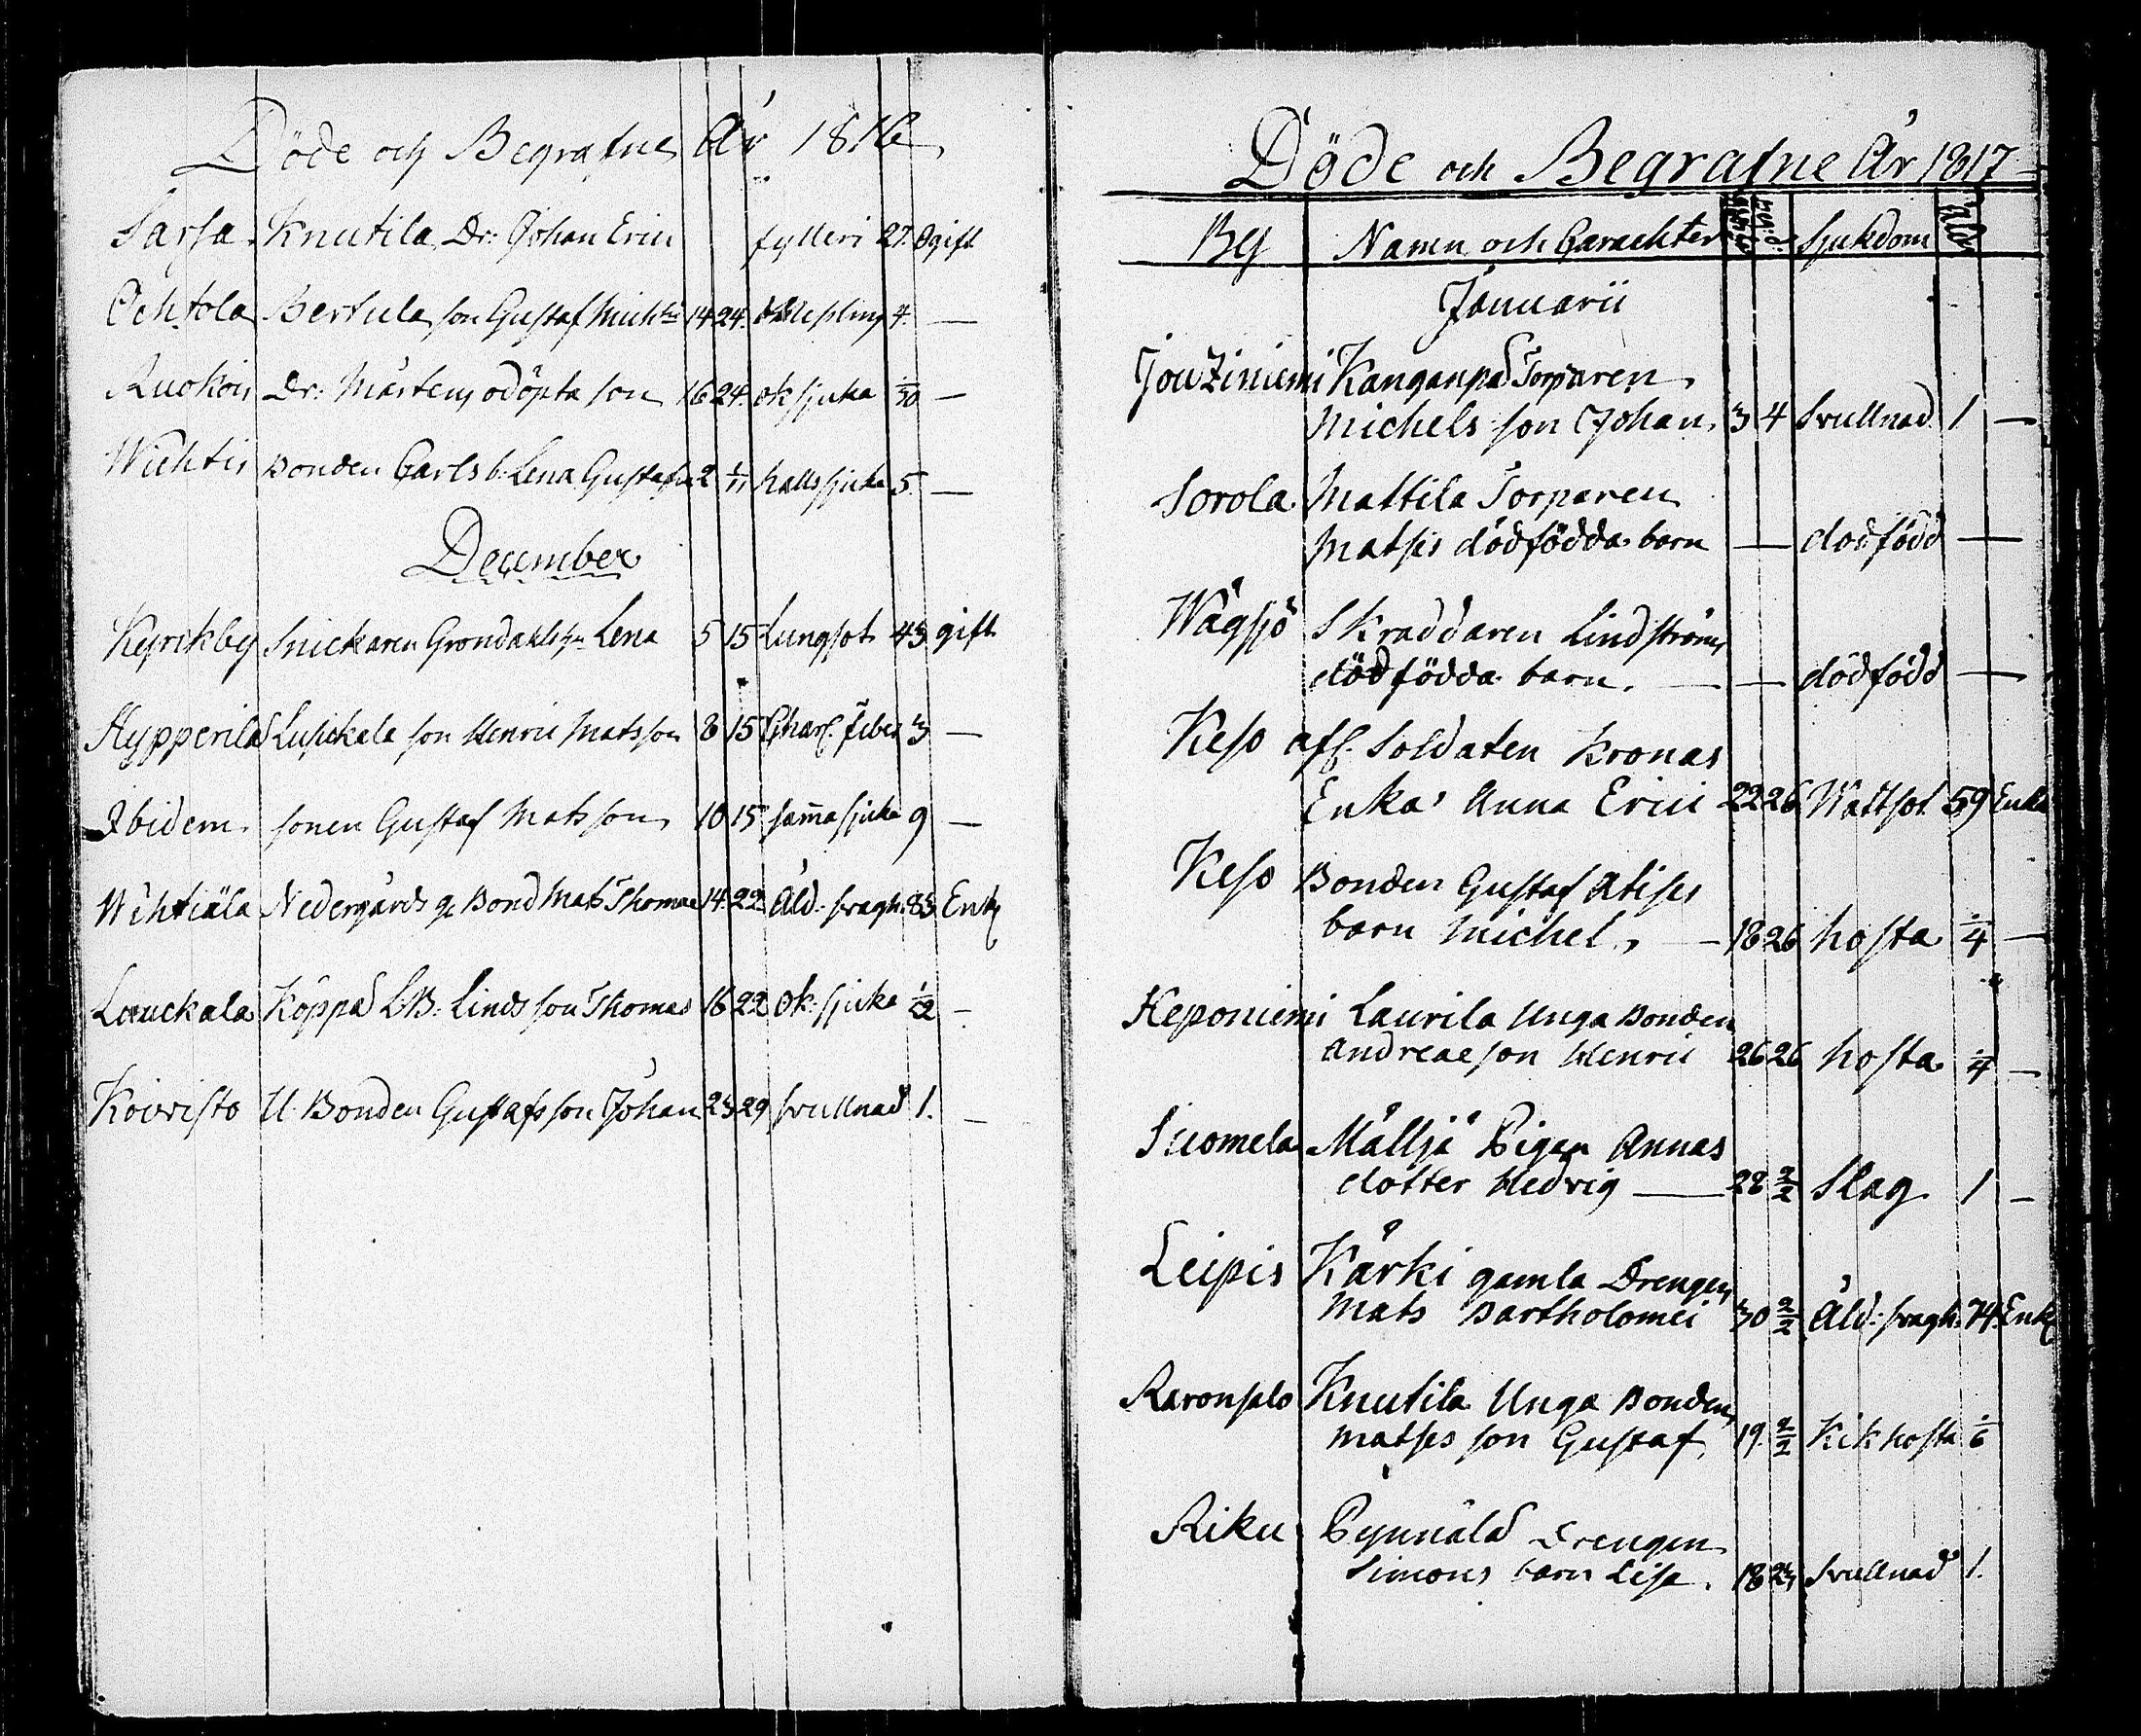 Döde och Begrafne År 1816
Sarsa Knutila Dr: Johan Erici fylleri 27. Ogift
Ochtola Bertula son Gustaf Mich: 14 24. 4. —
Ruokois Dr: Mårtens odöpta son 16 24. ok sjuka 1/30 —
Wichtis Bonden Carls b: Lena Gustafs 2 1/11 halssjuka 5. —
December
Kyrkby Snickaren Grondahls h: Lena 5 15 Lungsot 43 gift
Hypperilä Lusickala son Henric Matsson 8 15 Schar. feber 3 —
Ibidem. sonen Gustaf Matsson 10 15 samma sjuka 9 —
Wihtiälä Nedergårds g. Bond Mats Thomae 14. 22. Åld: svagh: 83 Enkl
Lauckala Köppä LB: Linds son Thomas 16 22 Ok: sjuka 1/2 —
Koivisto U. Bonden Gustafs son Johan 23 29 svullnad 1. —
Döde och Begrafne År 1817
By Namn och Carachter Sjukdom åld
Januarii
Jouziniemi Kanganpä Torparen
Michels son Johan 3 4 Svullnad 1 —
Sorola Mattila Torparen
Matses dödfödda barn — dodfödd —
Wågsjö Skraddaren Lindströms
dödfödda barn. — — dödfödd —
Keso afl. Soldaten Kronas
Enka Anna Erici 22 26 Wattsot 59 Enka
Keso Bonden Gustaf Atises
barn Michel, — 18 26 hosta 1/4 —
Heponiemi Laurila Unga Bonden
Andreae son Henric 26 26 hosta 1/4 —
Suomela Mälljä Pigan Annas
dotter Hedvig — 28 2/2 Slag 1 —
Leipis Kärki gamla Drengen
Mats Bartholomei 30 2/2 Åld: svagh: 74. Enkl
Raronsalo Knutila Unga Bonden
Matses son Gustaf 19. 2/2 Kikhosta 1/6
Riku Pynnälä Drengen
Simons barn Lisa. 18 23 Svullnad 1.